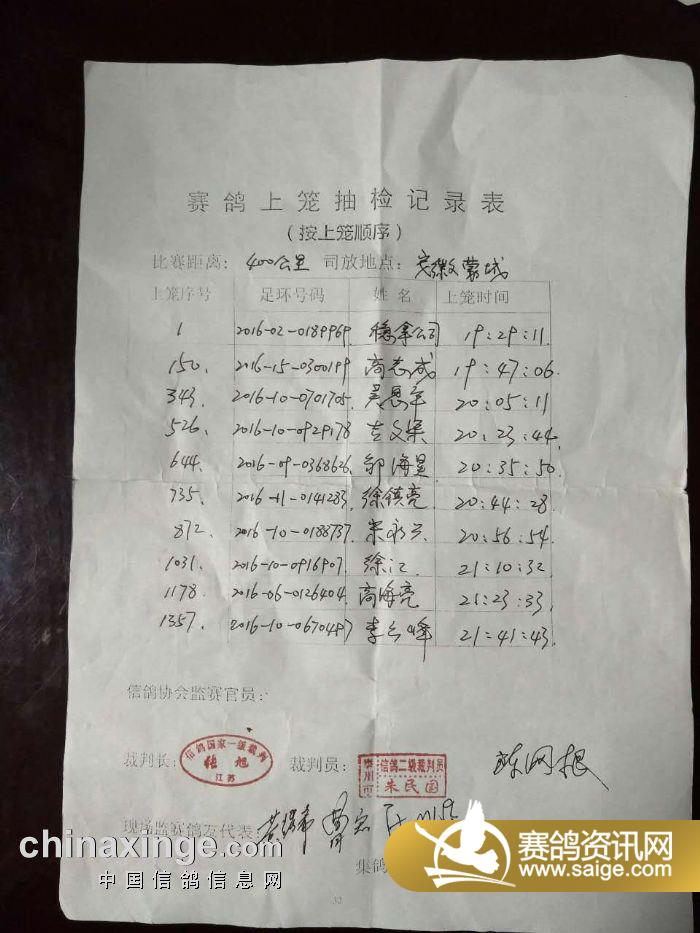 赛鸽上笼抽检记录表
(按上笼顺序)
比赛距离: 400公里 司放地点: 安徽蒙城
上笼序号 足环号码 姓名 上笼时间
1 2016-02-0189969 公司 19:29:11
150. 2016-15-0300199 高志成 19:47:06
343. 2016-10-0701705 吴恩年 20:05:11
526. 2016-10-0929178 20:23:44
644. 2016-09-0368626 邹海星 20:35:50
735. 2016-11-0141283 徐镇亮 20:44:28
872. 2016-10-0188737 朱永兴 20:56:54
1031. 2016-10-0916907 徐江 21:10:32
1178. 2016-06-0126404 高海亮 21:23:33
1357. 2016-10-0670487 李云峰 21:41:43
信鸽协会监赛官员:
裁判长: 信鸽国家一级裁判 旭 江苏 裁判员: 泰州市 信鸽二级裁判员 朱民国 陈网根
现场监赛鸽友代表:
集鸽
chinaxinge.com
中国信鸽信息网
赛鸽资讯网
www.saige.com